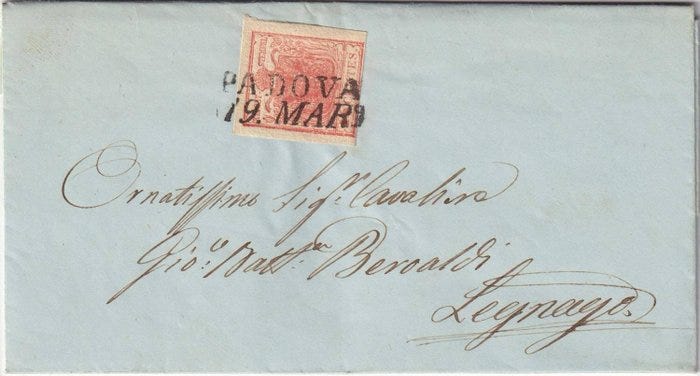 PADOVA
19. MARZ
Ornatissimo Sigr. Cavaliere
Gio: Batta. Beroaldi
Legnago.